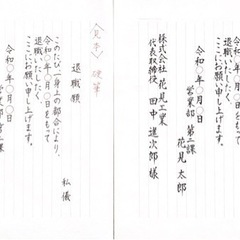 令和〇年〇月〇日をもって
退職いたしたく、
ここにお願い申し上げます。
令和〇年〇月〇日
営業部 第二課
花見 太郎
株式会社 花見工業
代表取締役 田中 進次郎 様
〈見本〉 硬筆
退職願
私儀
このたび一身上の都合により、
令和〇年〇月〇日をもって
退職いたしたく、
ここにお願い申し上げます。
令和〇年〇月〇日
営業部 第二課